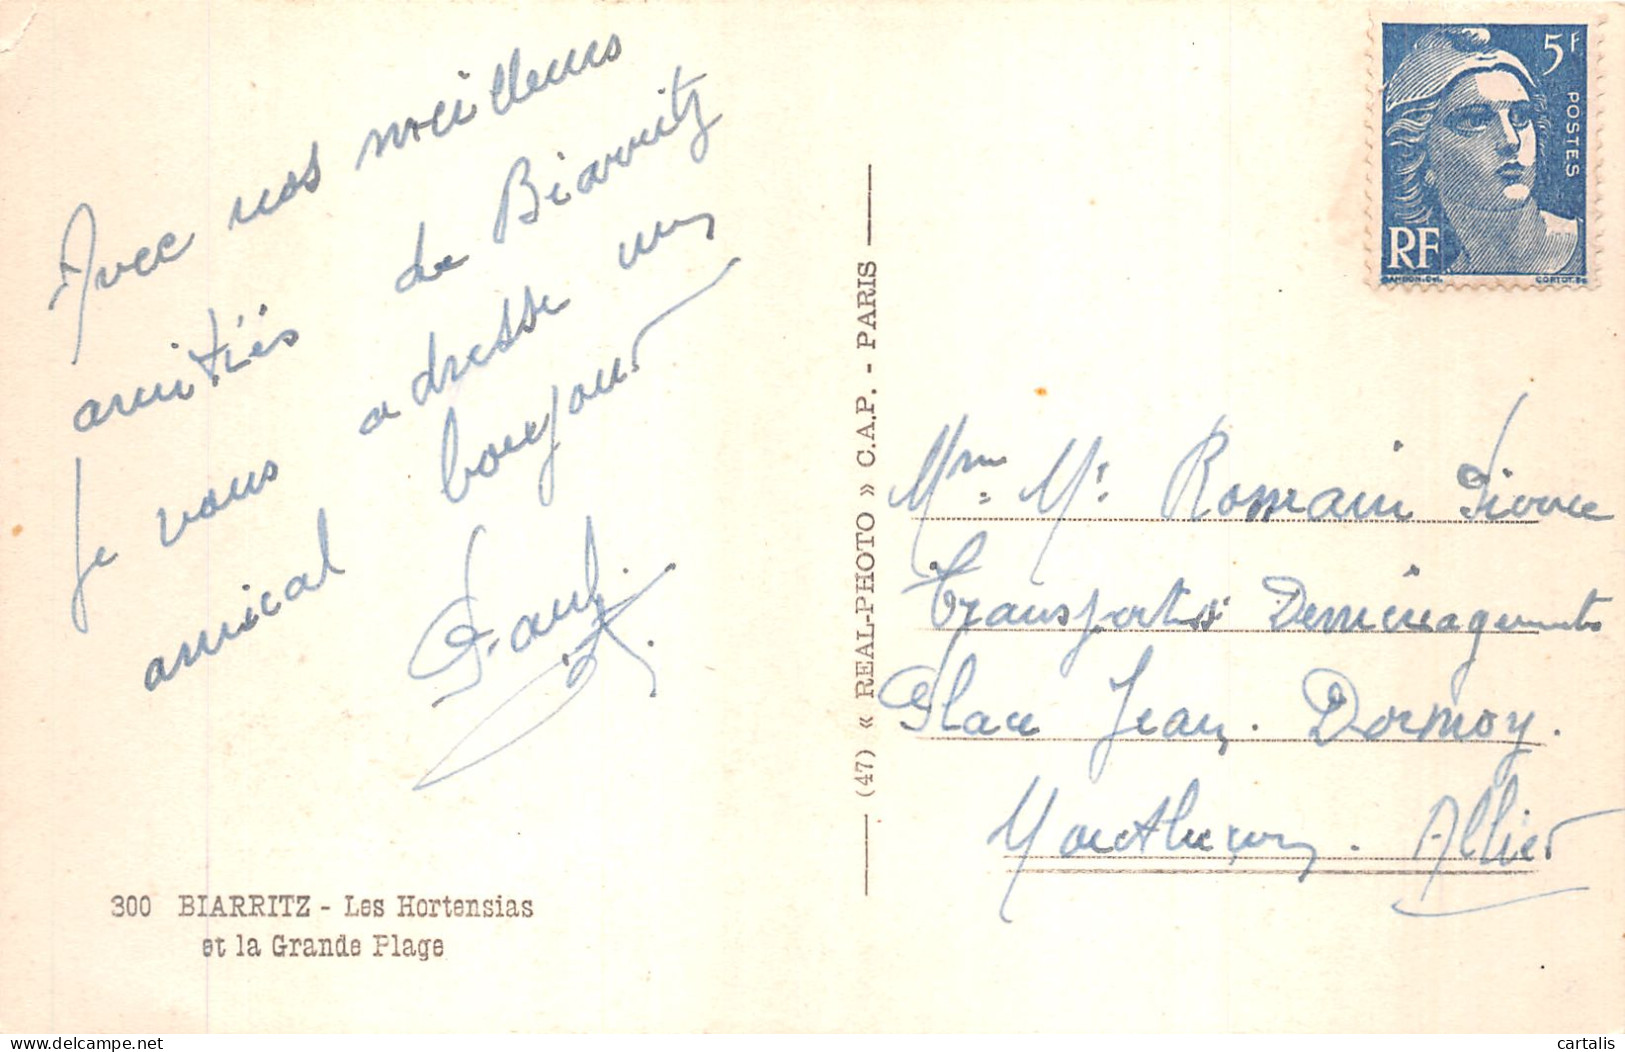 Avec nos meilleurs
amitiés de Biarritz
Je vous adresse un
amical bonjour
300 BIARRITZ - Les Hortensias
et la Grande Plage
(47) « REAL-PHOTO » C.A.P. - PARIS
5F
POSTES
RF
GANDON.Del.
CORTOT.Sc
Mme Mr Romain
Transports Deménagements
Place Jean. Dormoy.
Montluçon. Allier
cartalis
delcampe.net